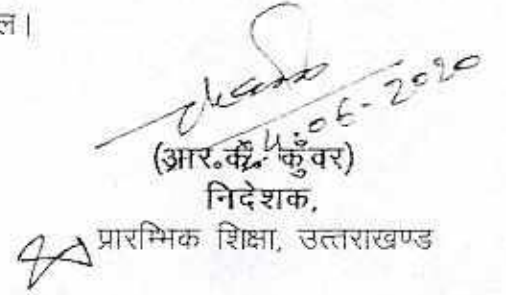 ल।
24.06-2020
(आर.के. कुँवर)
निदेशक,
प्रारम्भिक शिक्षा, उत्तराखण्ड